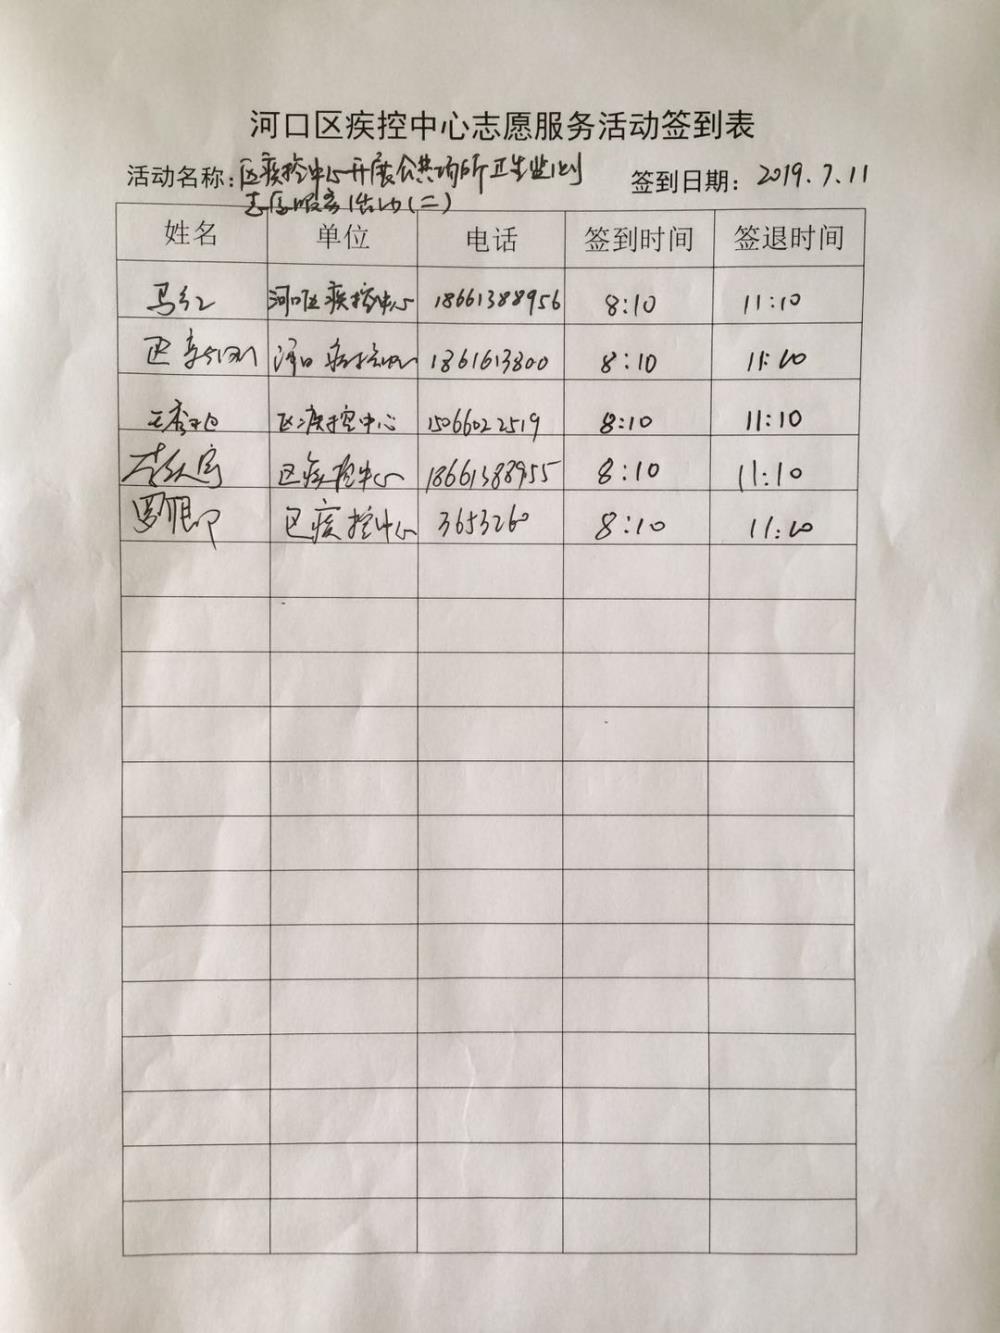 河口区疾控中心志愿服务活动签到表
活动名称：区疾控中心开展公共场所卫生监测 签到日期：2019.7.11
志愿服务活动(二)
姓名 单位 电话 签到时间 签退时间
马红 河口区疾控中心 18661388956 8:10 11:10
河口疾控中心 1861613800 8:10 11:10
区疾控中心 15066022519 8:10 11:10
区疾控中心 18661388955 8:10 11:10
区疾控中心 3653260 8:10 11:10